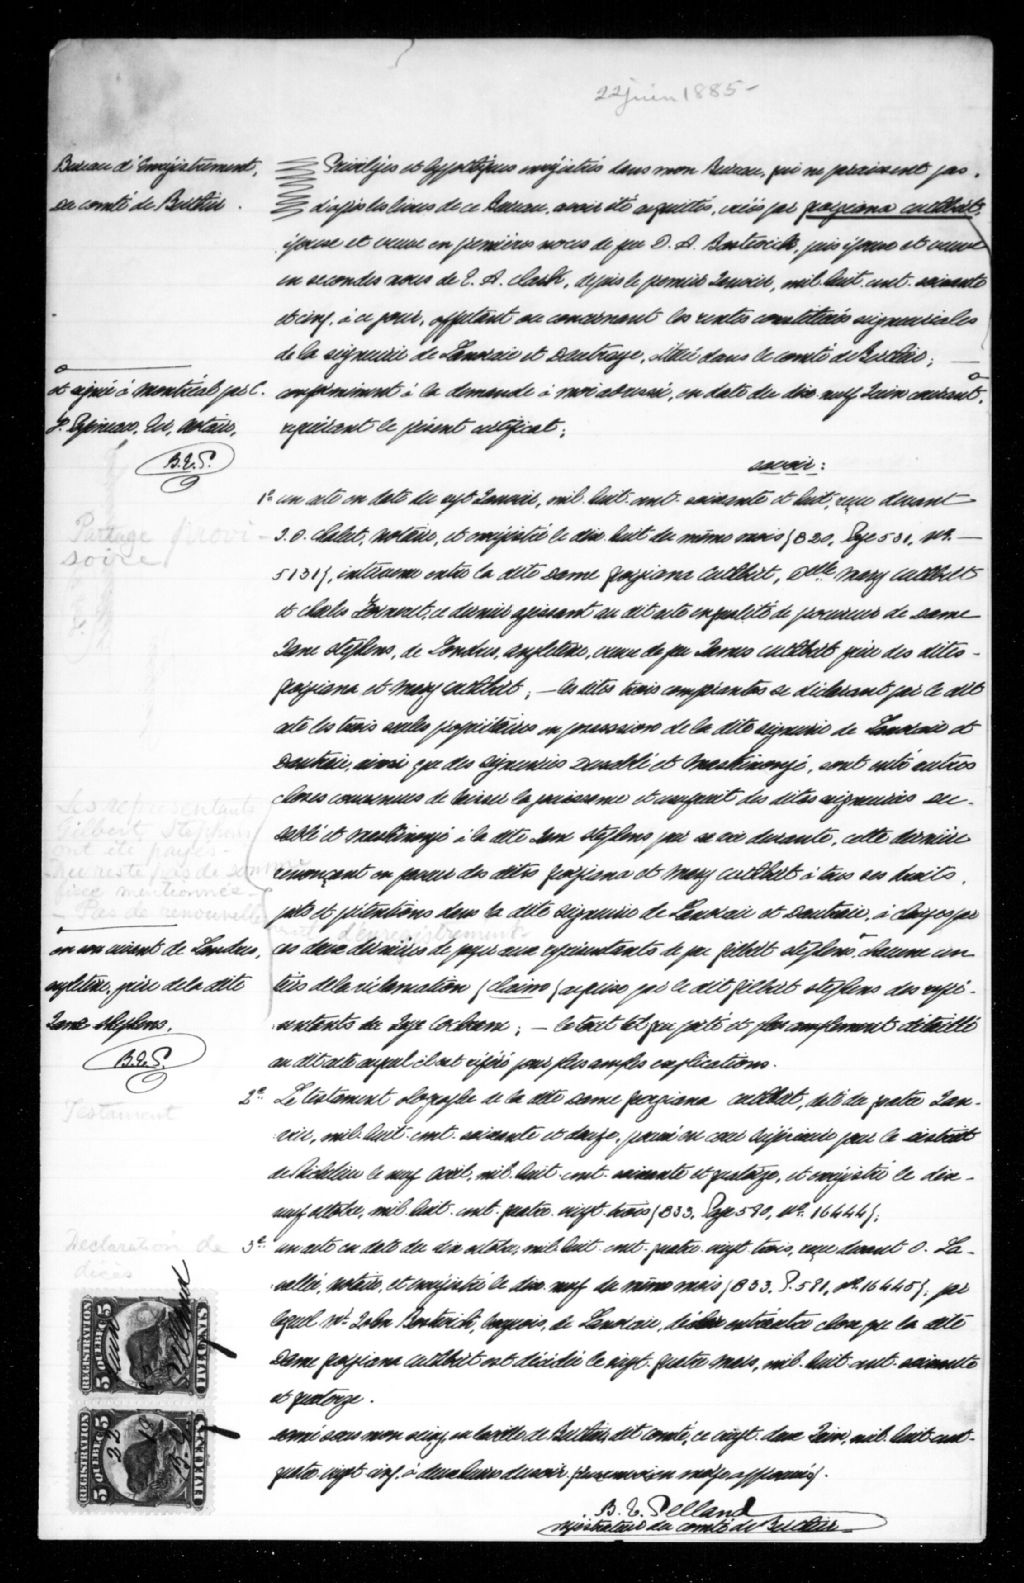 22 juin 1885-
Bureau d'Enregistrement,
du comté de Berthier.
Privilèges et hypothèques enregistrés dans mon Bureau, qui ne paraissent pas,
d'après les livres de ce Bureau, avoir été acquittés, créés par Georgiana Cuthbert,
épouse et veuve en premières noces de feu D. A. Bostwick, puis épouse et veuve
en secondes noces de E. A. Clark, depuis le premier Janvier, mil huit cent soixante
et cinq, à ce jour, affectant ou concernant les rentes constituées seigneuriales
de la seigneurie de Lanoraie et Dautraye, situé dans le comté de Berthier;
conformément à la demande à moi adressée, en date du dix neuf Juin courant,
et signée à Montréal par C.
J. Papineau, Ecr, Notaire,
B.E.P.
requérant le présent certificat;
savoir:
1º un acte en date du sept Janvier, mil huit cent soixante et huit, reçu devant
J. O. Chalut, Notaire, et enregistré le dix huit du même mois (B20, Page 531, Nº.
5131), intervenu entre la dite Dame Georgiana Cuthbert, Delle Mary Cuthbert
et Charles ce dernier agissant au dit acte en qualité de procureur de Dame
Jane Stephens, de Londres, Angleterre, veuve de feu James Cuthbert père des dites
Georgiana et Mary Cuthbert; - les dites trois comparantes se déclarant par le dit
acte les trois seules propriétaires en possession de la dite seigneurie de Lanoraie et
Dautraie, ainsi que des seigneuries Dusablé et Maskinongé, sont entre autres
choses convenues de laisser la jouissance et usufruit des dites seigneuries Du-
sablé et Maskinongé à la dite Jane Stephens par sa vie durante, cette dernière
renonçant en faveur des dites Georgiana et Mary Cuthbert à tous ses droits,
parts et prétentions dans la dite Seigneurie de Lanoraie et Dautraie, à charge par
ces deux dernières de payer aux représentants de feu Gilbert Stephens chacune un
tiers de la réclamation (claim) acquise par le dit Gilbert Stephens des repré-
sentants du Juge Cochrane; - le tout tel que porté et plus amplement détaillé
au dit acte auquel il est référé pour plus amples explications.
Partage provi-
soire
Les représentants
Gilbert Stephens
ont été payés -
Il ne reste pas de somme
fixe mentionnée -
- Pas de renouvelle
ment d'enregistrement -
en son vivant de Londres,
Angleterre, père de la dite
Jane Stephens.
B.E.P.
2º. Le testament olographe de la dite Dame Georgiana Cuthbert, daté du quatre Jan-
vier, mil huit cent soixante et douze, prouvé en cour Supérieure pour le District
de Richelieu le neuf Avril, mil huit cent soixante et quatorze, et enregistré le dix-
neuf octobre, mil huit cent quatre vingt trois (B33, Page 590, Nº. 16444);
Testament
3º. un acte en date du dix octobre, mil huit cent quatre vingt trois, reçu devant O. La-
vallée, Notaire, et enregistré le dix neuf du même mois (B33. P. 591, Nº. 16445), par
lequel Mr. John Bostwick, bourgeois, de Lanoraie, déclare entr'autre chose que la dite
Dame Georgiana Cuthbert est décédée le vingt quatre Mars, mil huit cent soixante
et quatorze.
Déclaration de
décès
Donné sous mon seing, en la ville de Berthier, dit comté, ce vingt deux Juin, mil huit cent
quatre vingt cinq, à deux heures du soir.
B. E. Pelland
registrateur du comté de Berthier
REGISTRATION
5 QUEBEC 5
REGISTRATION
5 QUEBEC 5